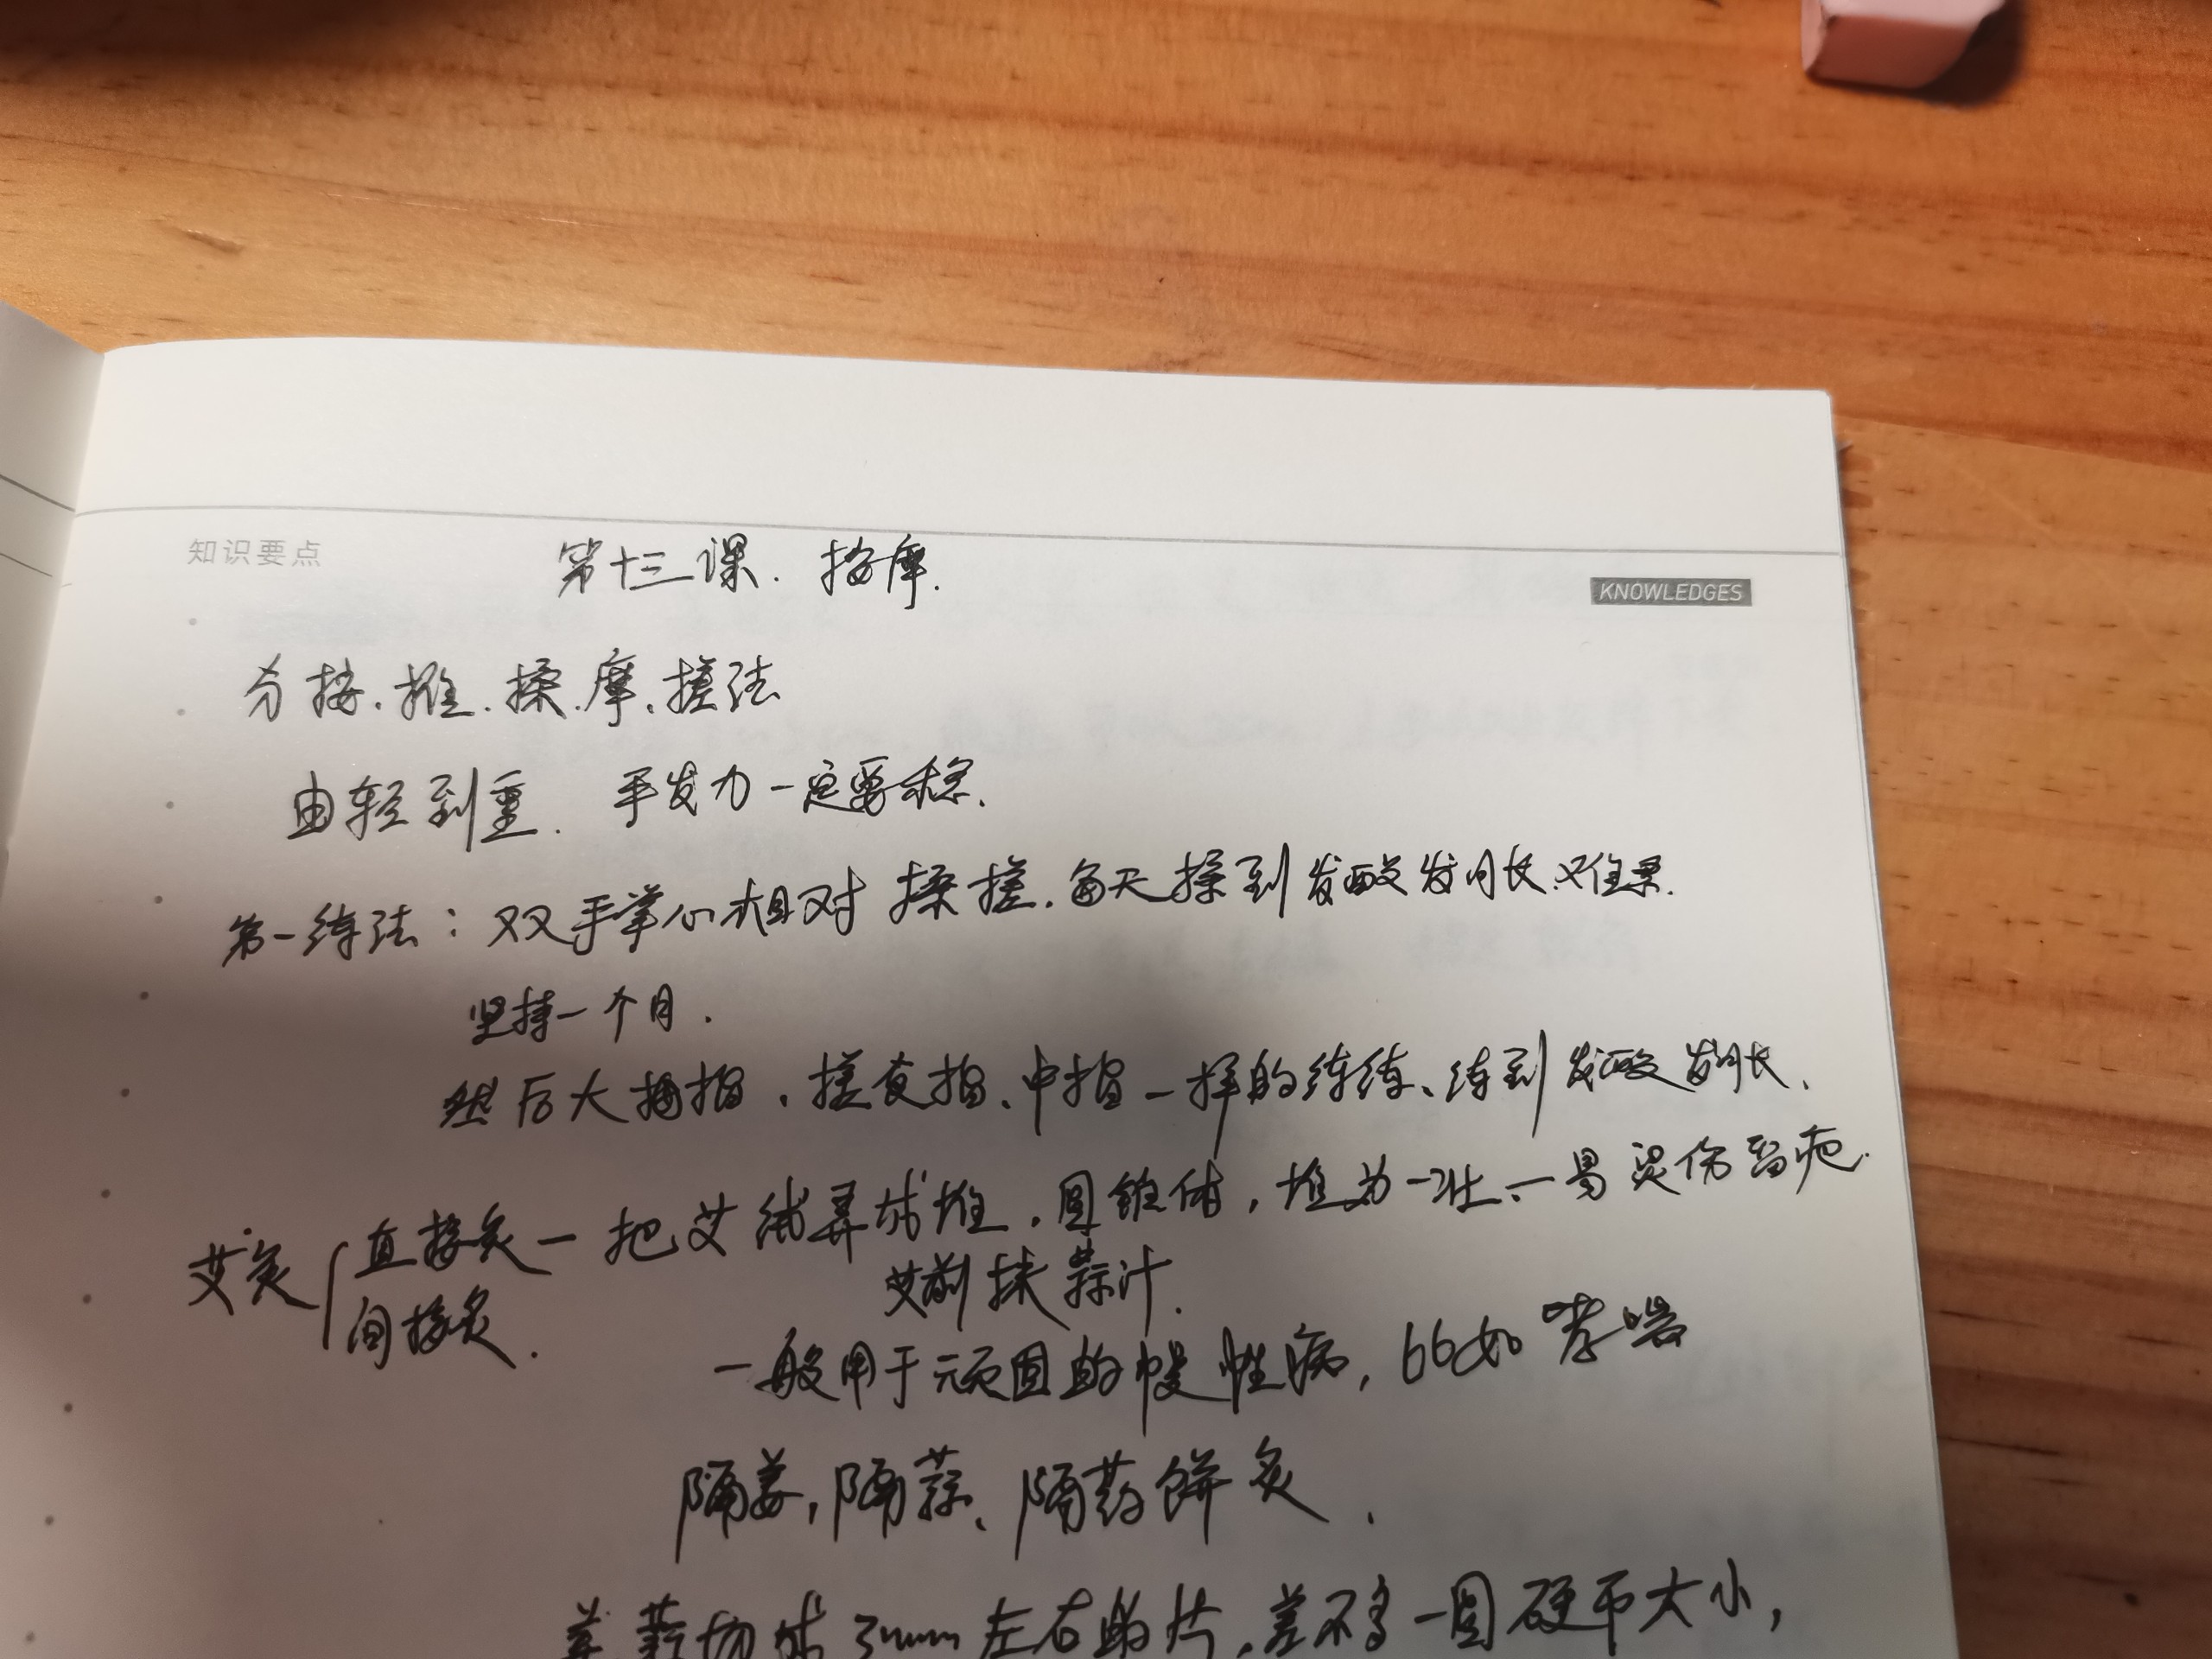 知识要点
第十三课. 按摩.
KNOWLEDGES
分按.推.揉.摩.搓法
由轻到重. 手发力一定要稳.
第一练法：双手掌心相对 揉搓.每天揉到发酸发胀.
坚持一个月.
然后大拇指、搓食指、中指一样的练练、练到发酸发胀、
艾灸 直接灸一把艾绒弄成堆，圆锥体，堆为一壮.一易灵伤留疤.
艾前抹蒜汁.
间接灸.
一般用于顽固的慢性病，比如哮喘
隔姜，隔蒜、隔药饼灸.
姜.蒜切成3mm左右的片、差不多一圆硬币大小，